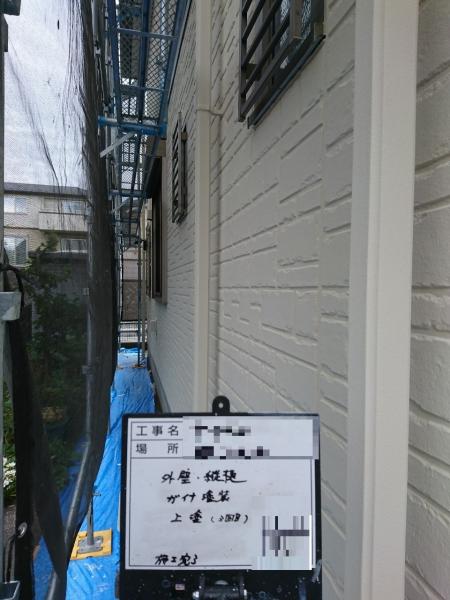 工事名
場所
外壁・縦樋
ガイナ塗装
上塗(3回目)
施工完了